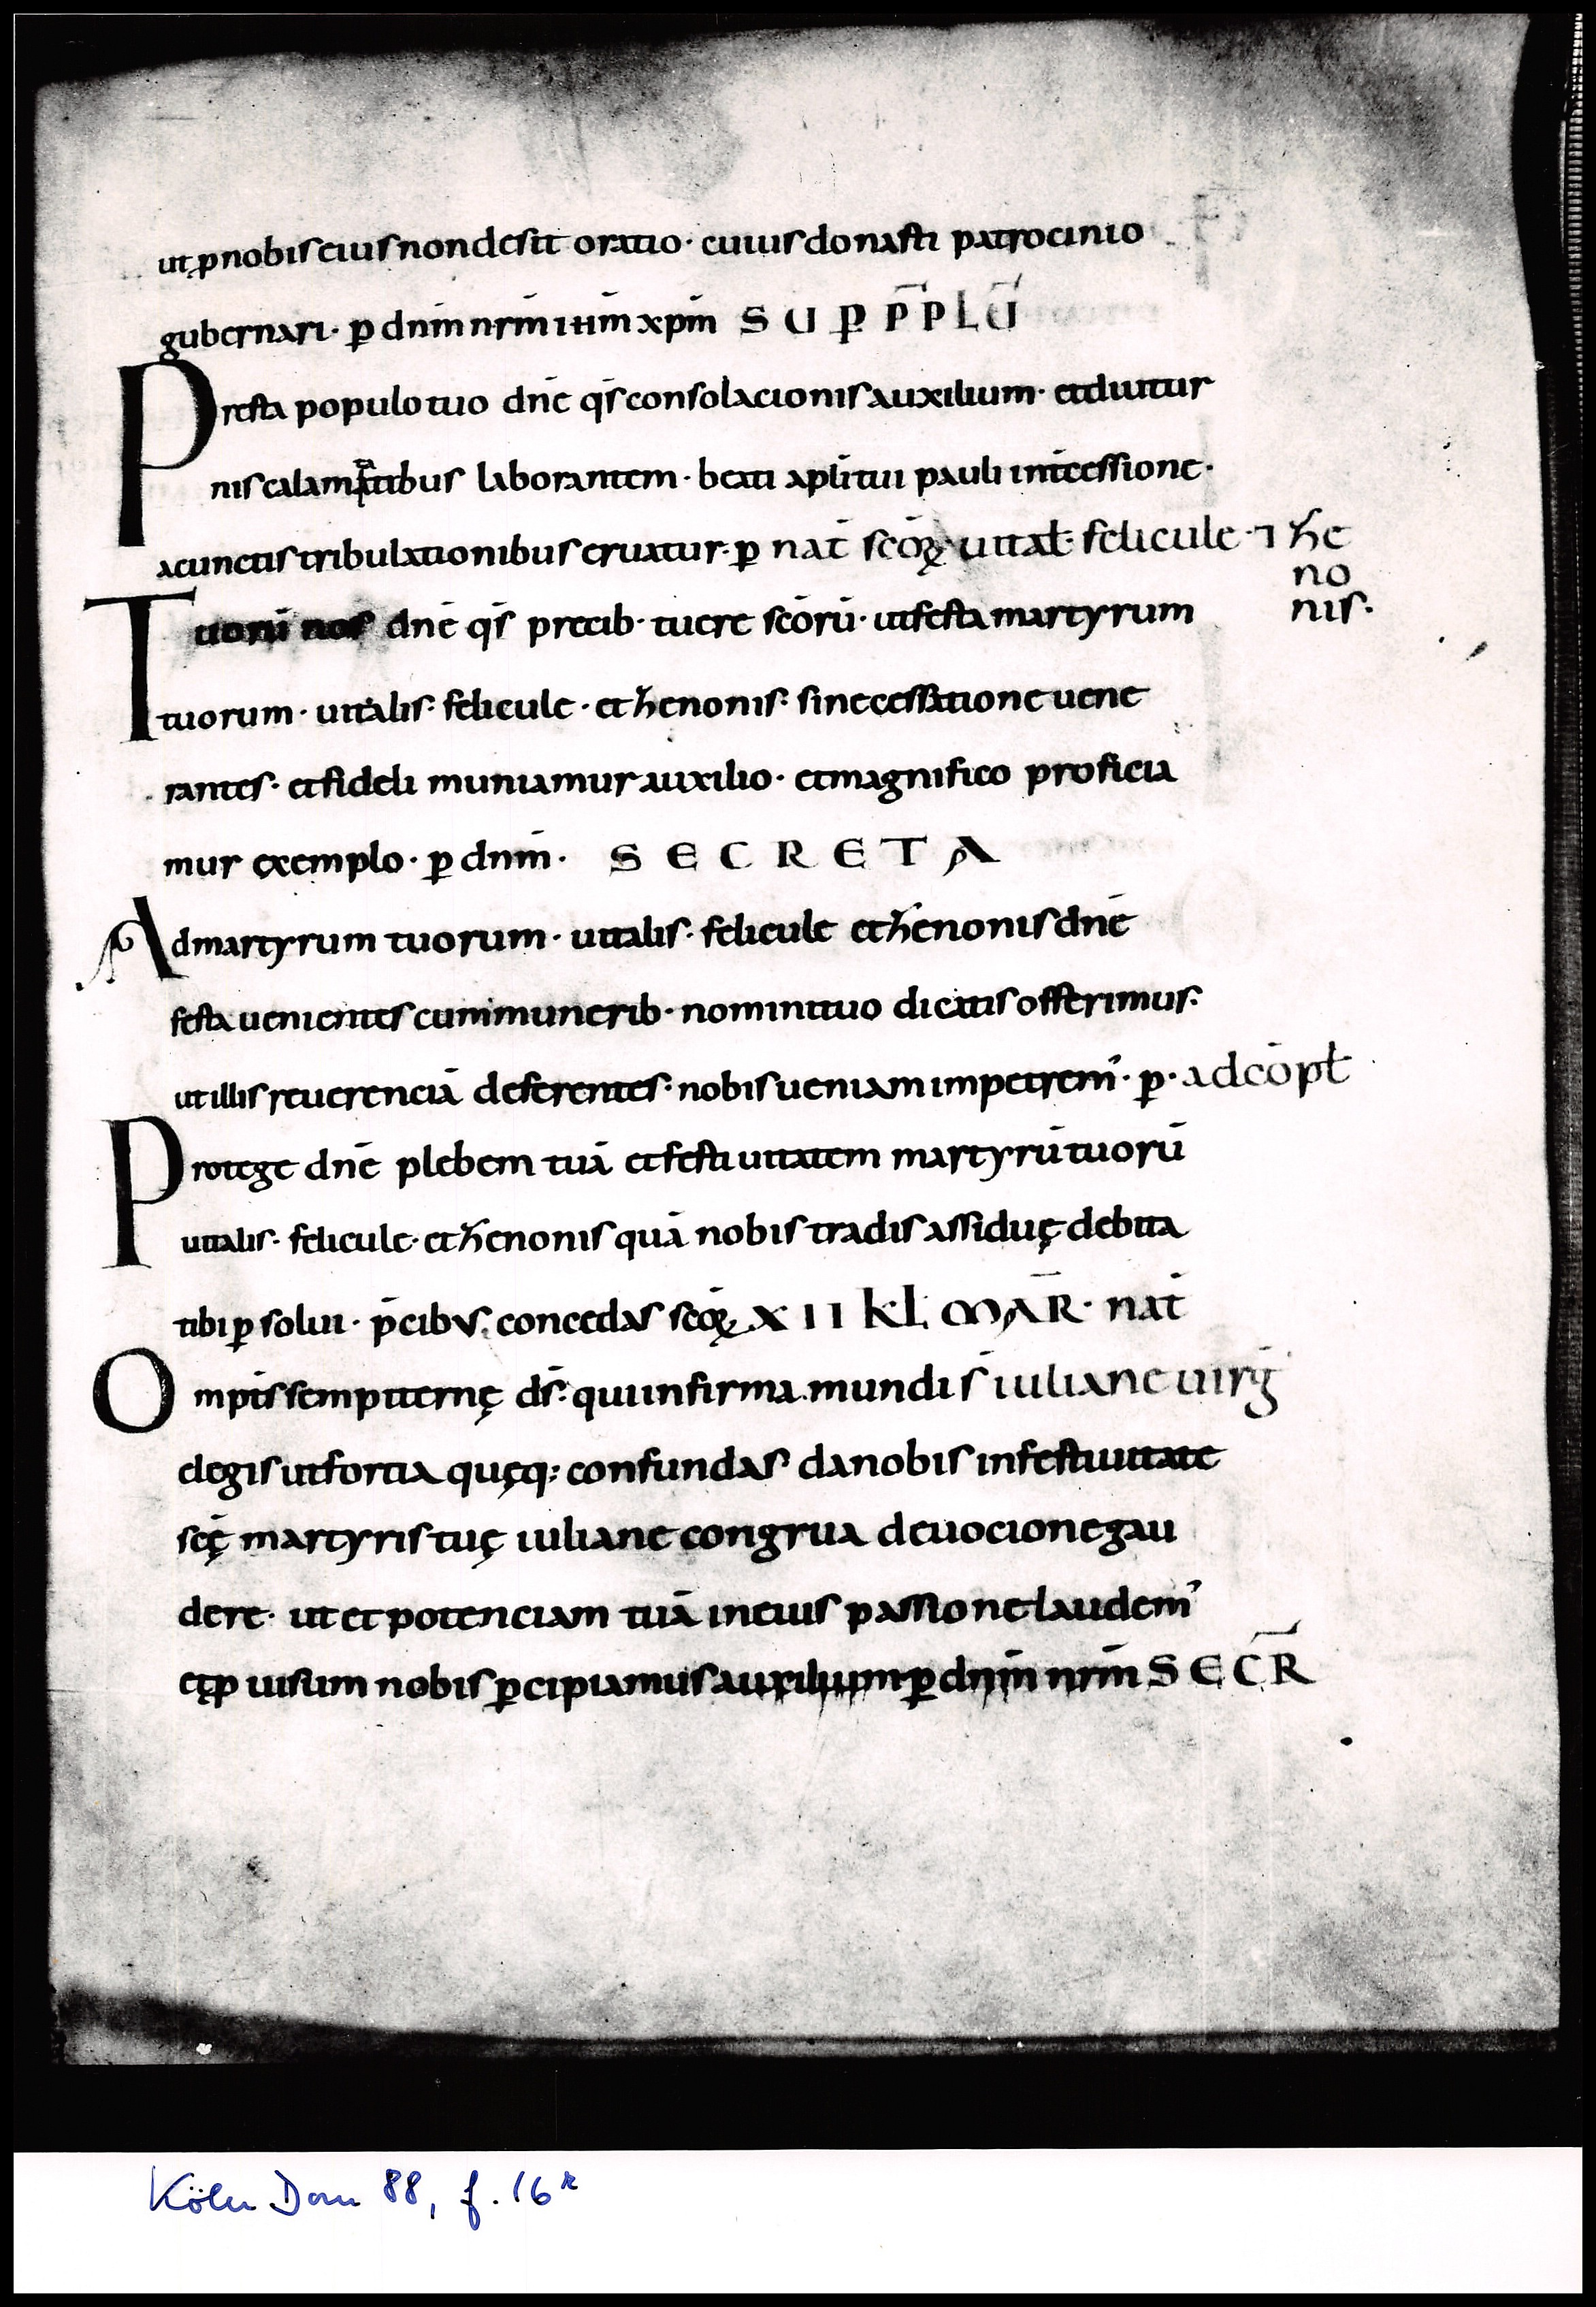 ut ꝓ nobis eius non desit oratio · cuius donasti patrocinio
gubernari · ꝑ dnm̄ nrm̄ ihm̄ xpm̄ SUꝑ P̄PLŪ
Presta populo tuo dnē qs̄ consolacionis auxilium · et diutur
nis calamitatibus laborantem · beati apli̅ tui pauli int̄cessione ·
a cunctis tribulationibus eruatur · ꝑ nat̄ scōꝝ uital̄ · felicule · ⁊ he
no
nis ·
Tuorū nos dnē qs̄ precib · tuere scōrū · ut festa martyrum
tuorum · uitalis · felicule · et henonis · sine cessatione uene
rantes · et fideli muniamur auxilio · et magnifico proficia
mur exemplo · ꝑ dnm̄ · SECRETA
Ad martyrum tuorum · uitalis · felicule et henonis dnē
festa uenientes cum munerib · nomini tuo dicatis offerimus ·
ut illis reuerenciā deferentes · nobis ueniam impetrem᾿ · ꝑ · ad cōpl̄
Protege dnē plebem tuā et festiuitatem martyrū tuorū
uitalis · felicule · et henonis quā nobis tradis assiduę debita
tibi ꝑsolui · p̄cibus concedas scōꝝ XII KL̄ MAR̄ · nat̄
Omp̄ts sempiternę ds̄ · qui infirma mundi s̄ iuliane uirḡ
degis ut fortia quęq; confundas da nobis in festiuitate
scę̄ martyris tuę iuliane congrua deuocione gau
dere · ut et potenciam tuā in eius passione laudem᾿
et ꝓuisum nobis ꝑcipiamus auxilium ꝑ dnm̄ nrm̄ SECR̄
Köln Dom 88, f. 16ʳ